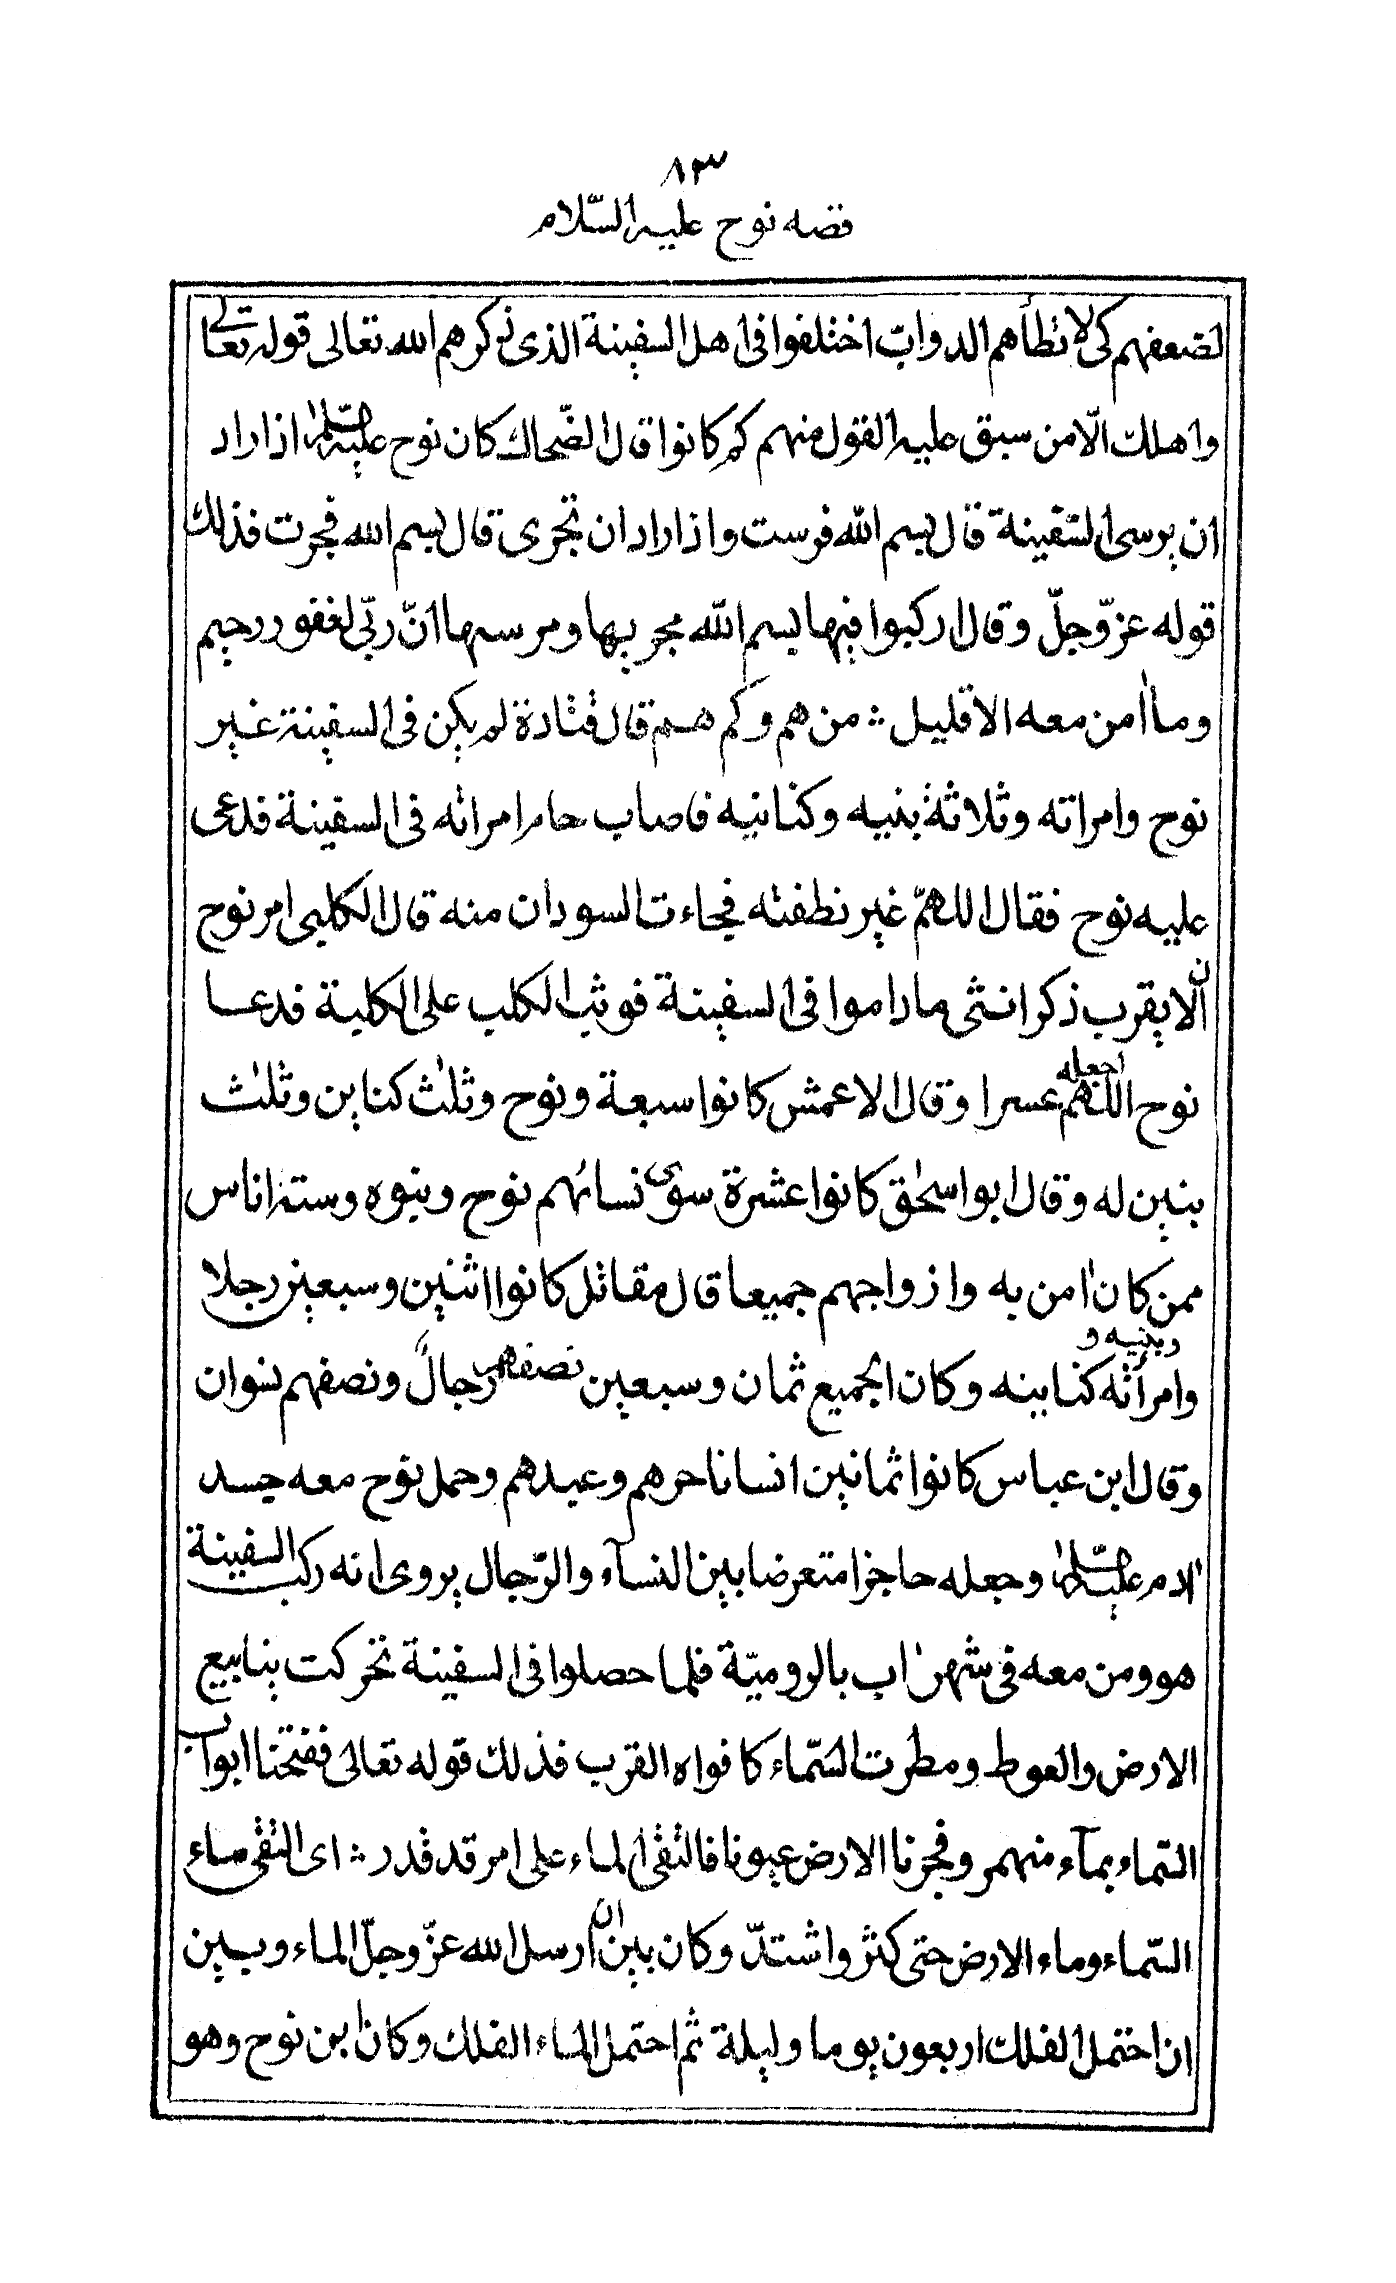 ٨٣
قصه نوح عليه السّلام
لضعفهم كى لا تطأهم الدوابّ اختلفوا فى اهل السفينة الذى ذكرهم الله تعالى قوله تعالى
واهلك الّا من سبق عليه القول منهم كم كانوا قال الضّحاك كان نوح عليه السّلم اذا اراد
ان يرسى السّفينة قال بسم الله فرست واذا اراد ان تجرى قال بسم الله فجرت فذلك
قوله عزّ وجلّ وقال اركبوا فيها بسم الله مجريها ومرسها انّ ربّى لغفور رحيم
وما اٰمن معه الا قليل ؞ من هم وكم هم قال قتادة لم يكن فى السفينة غير
نوح وامراته وثلاثة بنيه وكنانيه فاصاب حام امراته فى السفينة فدعى
عليه نوح فقال اللهمّ غير نطفته فجاءت السودان منه قال الكلبى امر نوح
ان لا يقرب ذكر انثى ماداموا فى السفينة فوثب الكلب على الكلبة فدعا
نوح اللهم اجعله عسرا وقال الاعمش كانوا سبعة ونوح وثلٰث كناين وثلٰث
بنين له وقال ابو اسحٰق كانوا عشرة سوى نسائهم نوح وبنوه وستة اناس
ممن كان اٰمن به وازواجهم جميعا قال مقاتل كانوا اثنين وسبعين رجلا
وامرأته وبنيه و كنابنه وكان الجميع ثمان وسبعين نصفهم رجالٌ ونصفهم نسوان
وقال ابن عباس كانوا ثمانين انسانا حرهم وعبدهم وحمل نوح معه جسد
اٰدم عليه السّلم وجعله حاجزا متعرضا بين النسآء والرّجال يروى انه ركب السفينة
هو ومن معه فى شهر اٰب بالروميّة فلما حصلوا فى السفينة تحركت ينابيع
الارض والغوط ومطرت السّماء كافواه القرب فذلك قوله تعالى ففتحنا ابواب
السّماء بمآء منهمر وفجرنا الارض عيونا فالتقى الماء على امر قد قدر ؞ اى التقى ماء
السّماء وماء الارض حتى كثر واشتدّ وكان بين ان ارسل الله عزّ وجلّ الماء وبين
ان احتمل الفلك اربعون يوما وليلة ثم احتمل الماء الفلك وكان ابن نوح وهو